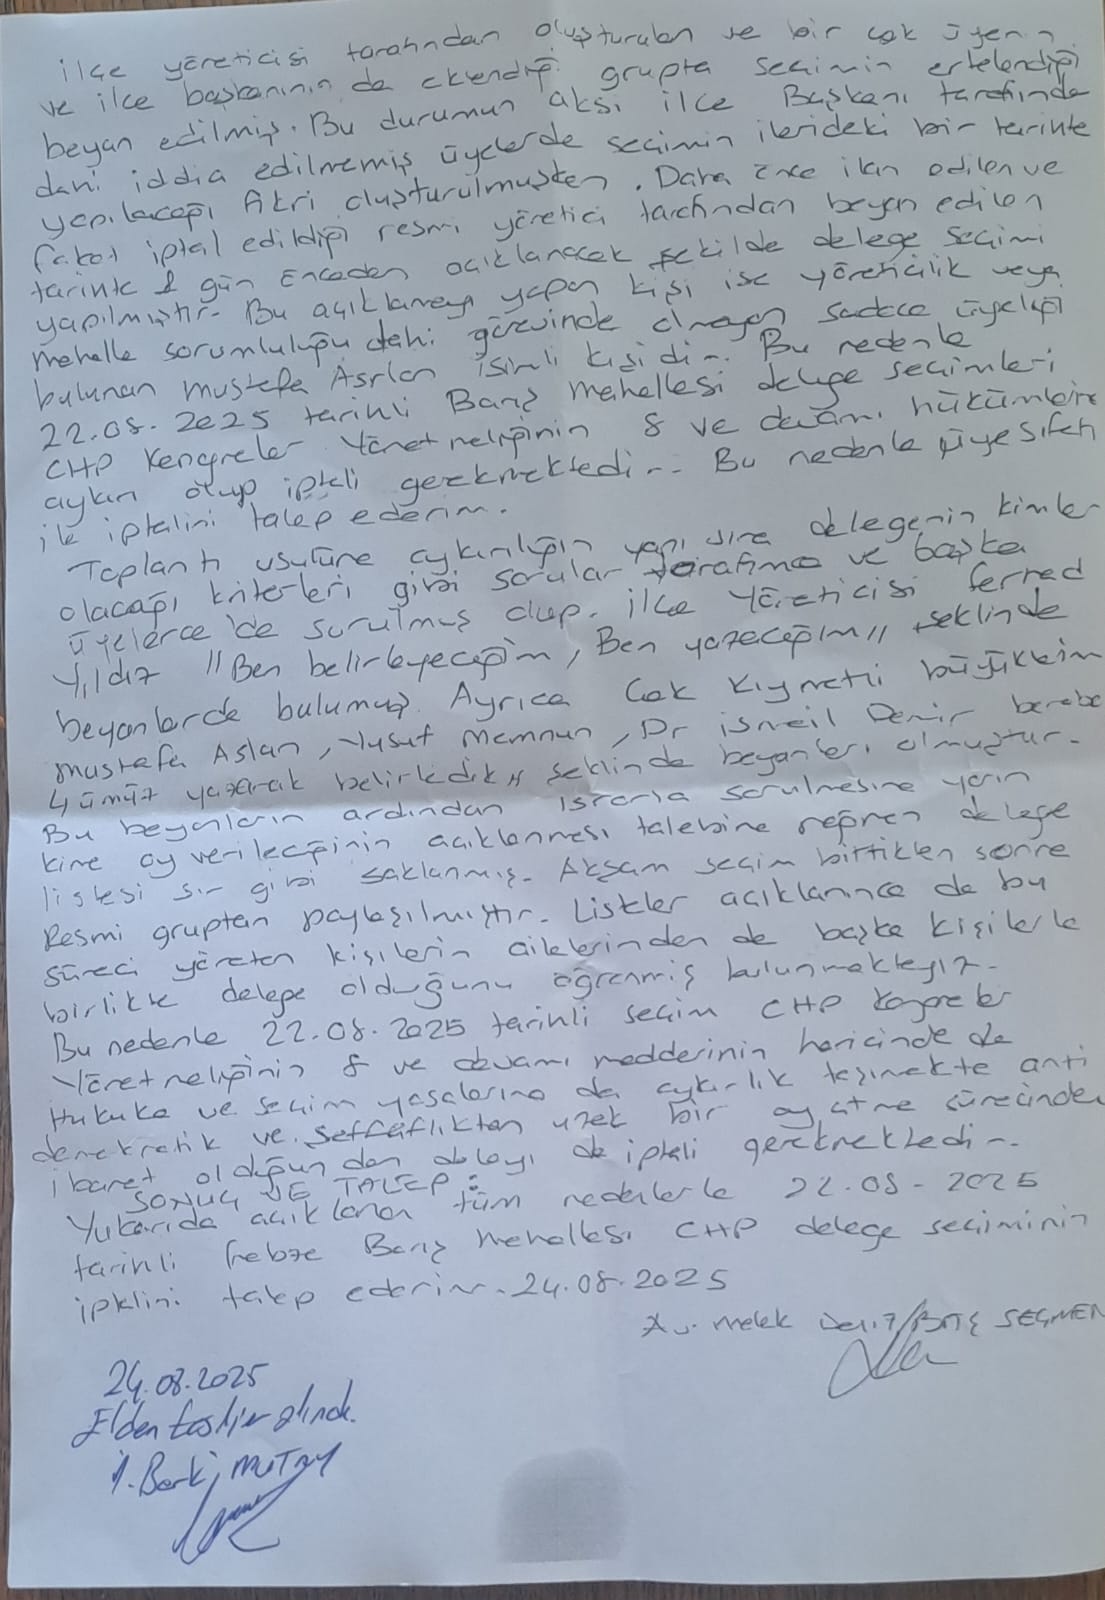 ilçe yöneticisi tarafından oluşturulan ve bir çok üyenin
ve ilçe başkanının da eklendiği grupta seçimin ertelendiği
beyan edilmiş. Bu durumun aksi ilçe Başkanı tarafında
dahi iddia edilmemiş üyelerde seçimin ilerideki bir tarihte
yapılacağı fikri oluşturulmuşken. Daha önce ilan edilen ve
fakat iptal edildiği resmi yönetici tarafından beyan edilen
tarihte gün önceden açıklanacak şekilde delege seçimi
yapılmıştır. Bu açıklamayı yapan kişi ise yöneticilik veya
mahalle sorumluluğu dahi görevinde olmayan sadece üyeliği
bulunan mustafa Aslan isimli kişidir. Bu nedenle
22.08.2025 tarihli Barış mahallesi delege seçimleri
CHP Kongreler Yönetmeliğinin 8 ve devamı hükümlerine
aykırı olup iptali gerekmektedir. Bu nedenle üye sıfatı
ile iptalini talep ederim.
Toplantı usulüne aykırılığın yanı sıra delegenin kimler
olacağı kriterleri gibi sorular tarafıma ve başka
üyelerce de sorulmuş olup. ilçe Yöneticisi ferhad
Yıldız "Ben belirleyeceğim, Ben yazacağım" şeklinde
beyanlarda bulunmuş. Ayrıca Çok kıymetli büyüklerim
mustafa Aslan, Yusuf memnun, Dr ismail Demir berabe
4 ümüz yazarak belirledik" şeklinde beyanları olmuştur.
Bu beyanların ardından ısrarla sorulmasına yarın
kime oy verileceğinin açıklanması talebine rağmen delege
listesi sır gibi saklanmış. Akşam seçim bittikten sonra
Resmi gruptan paylaşılmıştır. Listeler açıklanınca da bu
süreci yöneten kişilerin ailelerinden de başka kişilerle
birlikte delege olduğunu öğrenmiş bulunmaktayız.
Bu nedenle 22.08.2025 tarihli seçim CHP Kongreler
Yönetmeliğinin 8 ve devamı maddesinin haricinde de
Hukuka ve seçim yasalarına da aykırlık taşımakta anti
demokratik ve şeffaflıktan uzak bir oy atma sürecinden
ibaret olduğundan dolayı da iptali gerekmektedir.
SONUÇ VE TALEP:
Yukarıda açıklanan tüm nedenlerle 22.08.2025
tarihli Gebze Barış Mahallesi CHP delege seçiminin
iptalini talep ederim. 24.08.2025
Av. Melek Deniz BAŞ SEÇMEN
24.08.2025
Elden teslim alındı.
Berk MUTAY